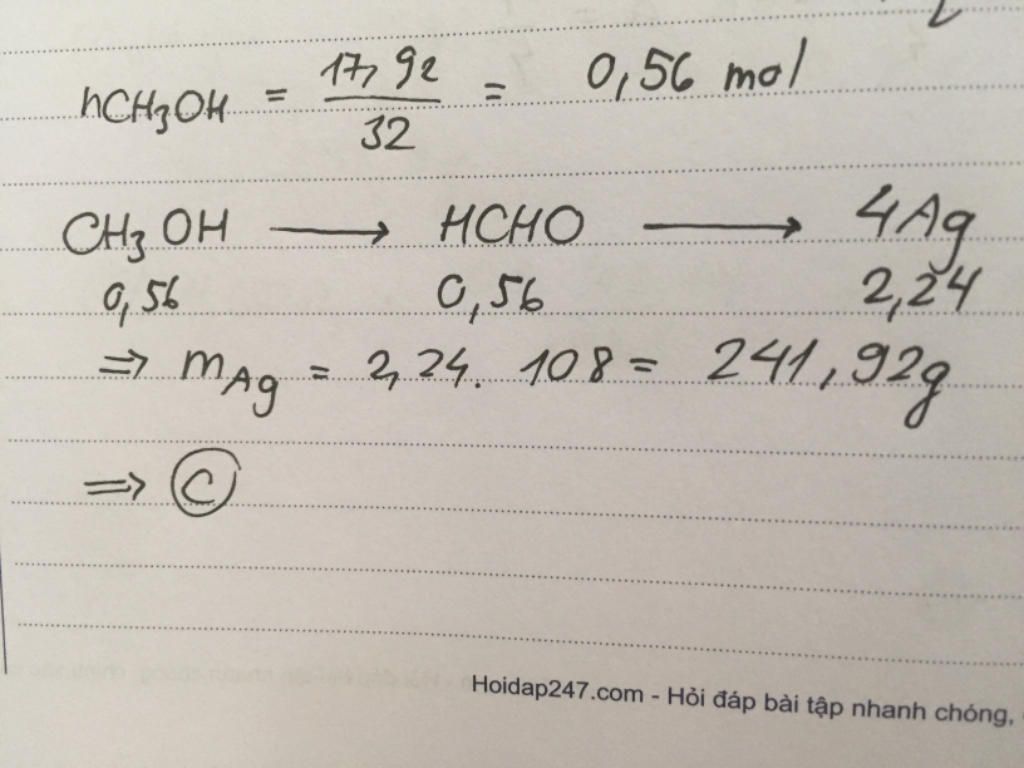 nCH₃OH = 17,92 / 32 = 0,56 mol
CH₃OH ⟶ HCHO ⟶ 4Ag
0,56 0,56 2,24
⇒ mAg = 2,24. 108 = 241,92g
⇒ Ⓒ
Hoidap247.com - Hỏi đáp bài tập nhanh chóng,